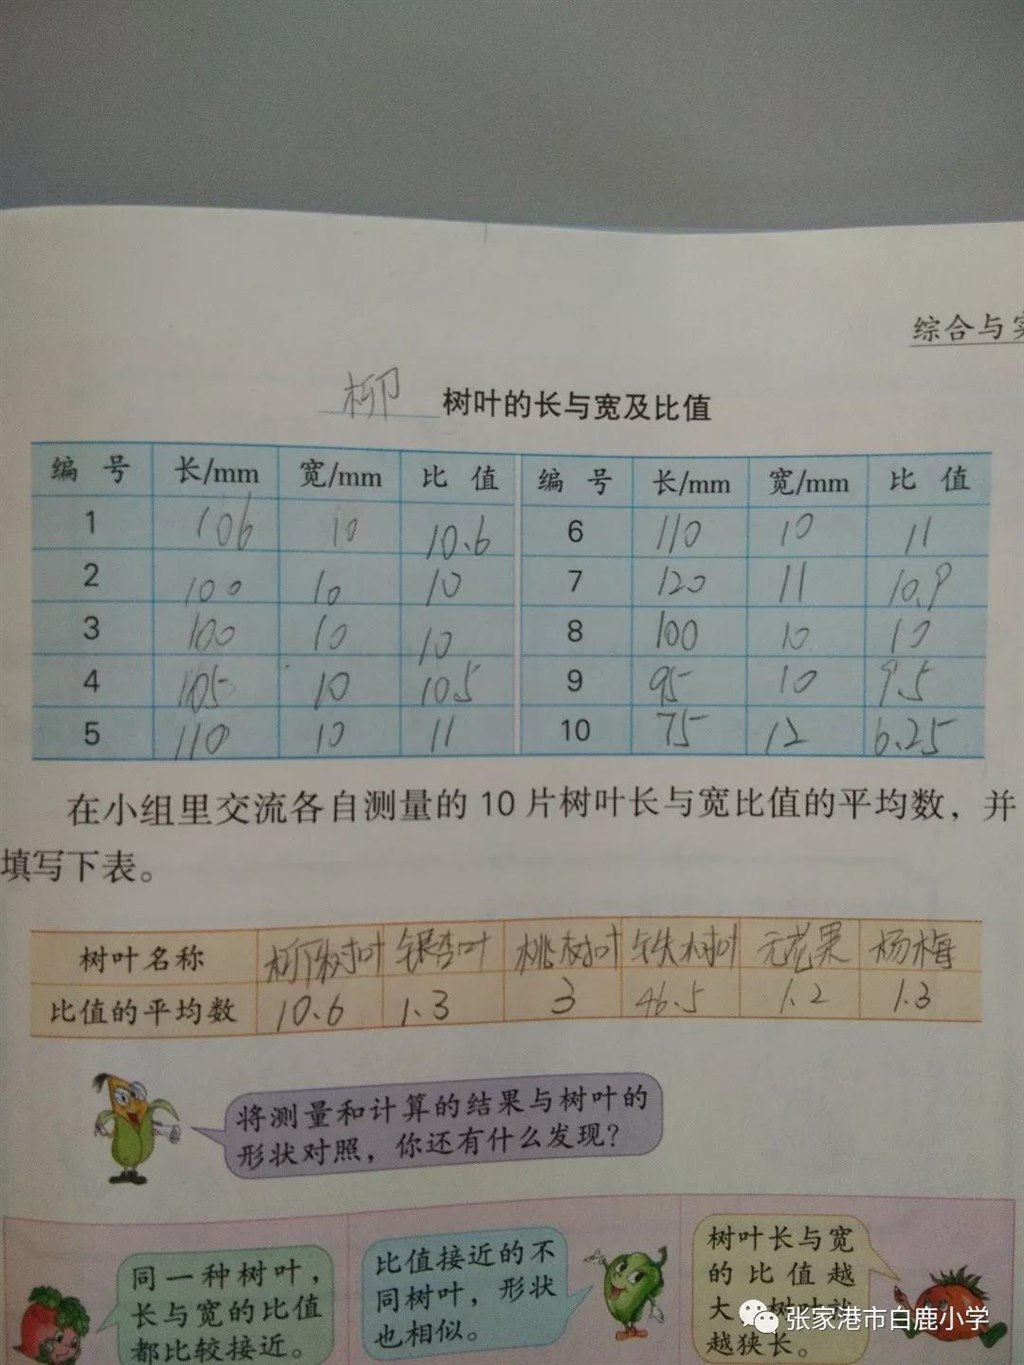 综合与实
柳 树叶的长与宽及比值
编 号 长/mm 宽/mm 比 值 编 号 长/mm 宽/mm 比 值
1 106 10 10.6 6 110 10 11
2 100 10 10 7 120 11 10.9
3 100 10 10 8 100 10 10
4 105 10 10.5 9 95 10 9.5
5 110 10 11 10 75 12 6.25
在小组里交流各自测量的 10 片树叶长与宽比值的平均数，并
填写下表。
树叶名称 柳树叶 银杏叶 桃树叶 铁树叶 无花果 杨梅
比值的平均数 10.6 1.3 3 46.5 1.2 1.3
将测量和计算的结果与树叶的
形状对照，你还有什么发现？
同一种树叶，
长与宽的比值
都比较接近。
比值接近的不
同树叶，形状
也相似。
树叶长与宽
的比值越
大 树叶
越狭长。
张家港市白鹿小学